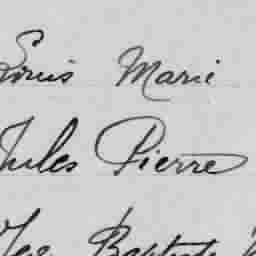 Louis Marie
Jules Pierre
Baptiste